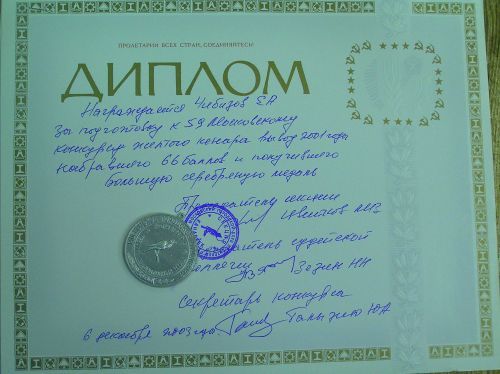 ПРОЛЕТАРИИ ВСЕХ СТРАН, СОЕДИНЯЙТЕСЬ!
ДИПЛОМ
Награждается Чибизов ЕА
За подготовку к 59 Московскому
конкурсу желтого кенара вывод 2001 года
набравшего 66 баллов и получившего
большую серебряную медаль
Председатель секции
судейской
коллегии Зезин НН
Секретарь конкурса
6 декабря 2003 года